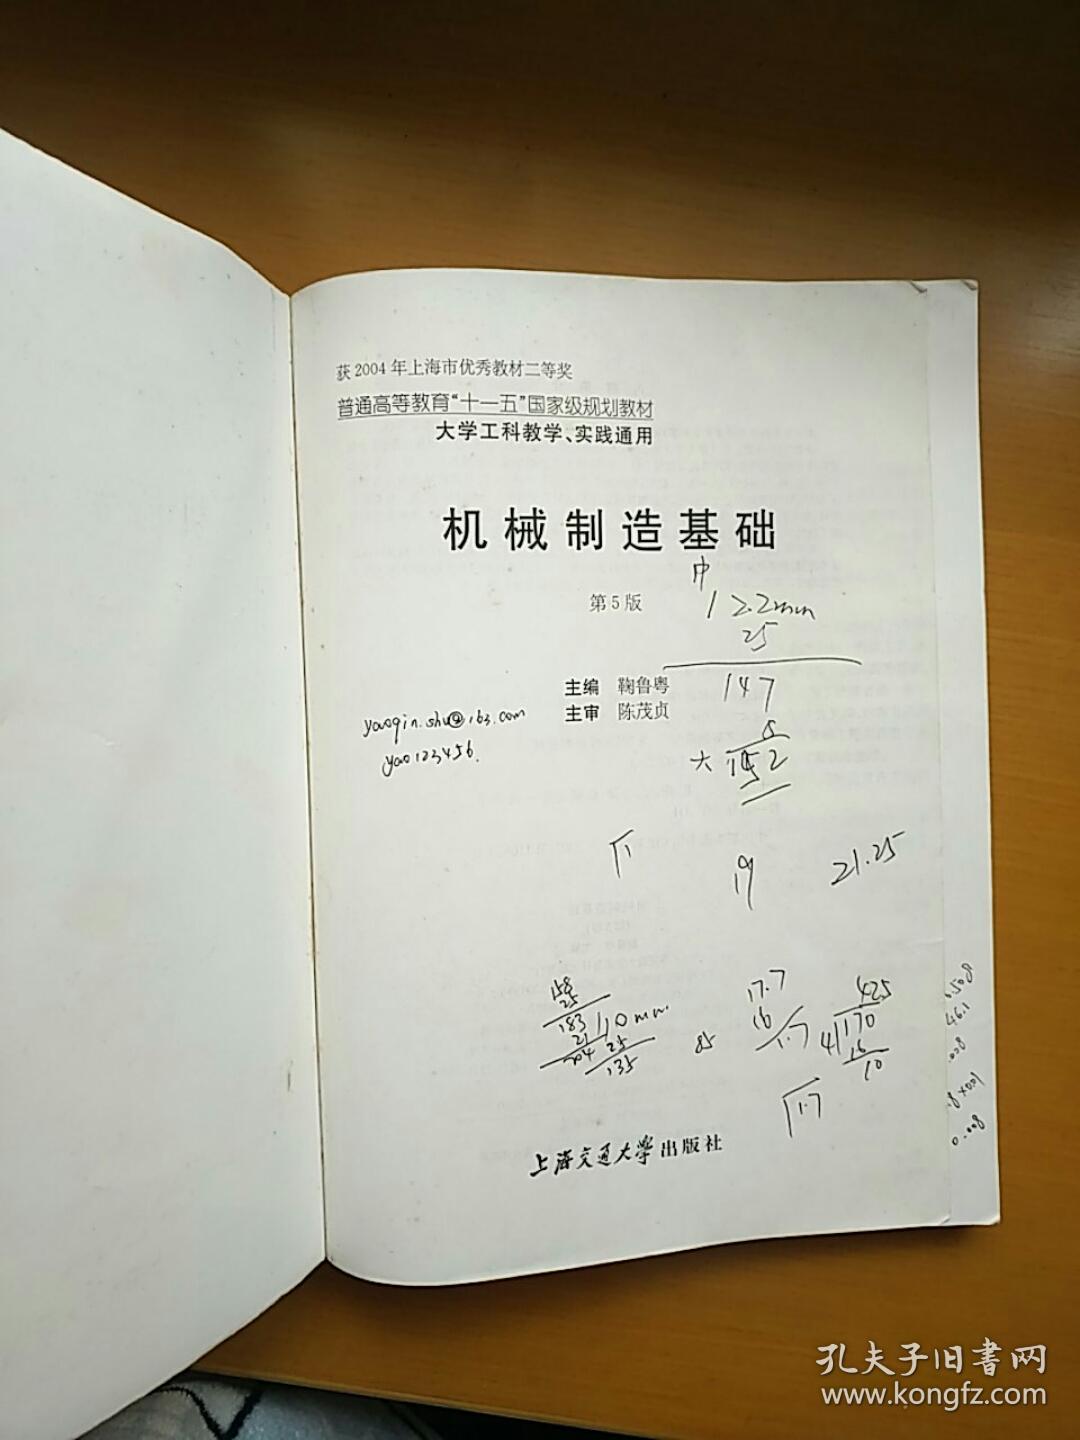 获2004年上海市优秀教材二等奖
普通高等教育“十一五”国家级规划教材
大学工科教学、实践通用
机械制造基础
中
第5版
12.2mm
25
主编 鞠鲁粤
147
主审 陈茂贞
yaoqin.shu@163.com
yao123456.
大 152
19
21.25
158
25
183
21
204
110mm.
25
135
85
17.7
16
1.7
425
4 170
16
10
1.7
46.1
0.008
上海交通大学出版社
孔夫子旧书网
www.kongfz.com